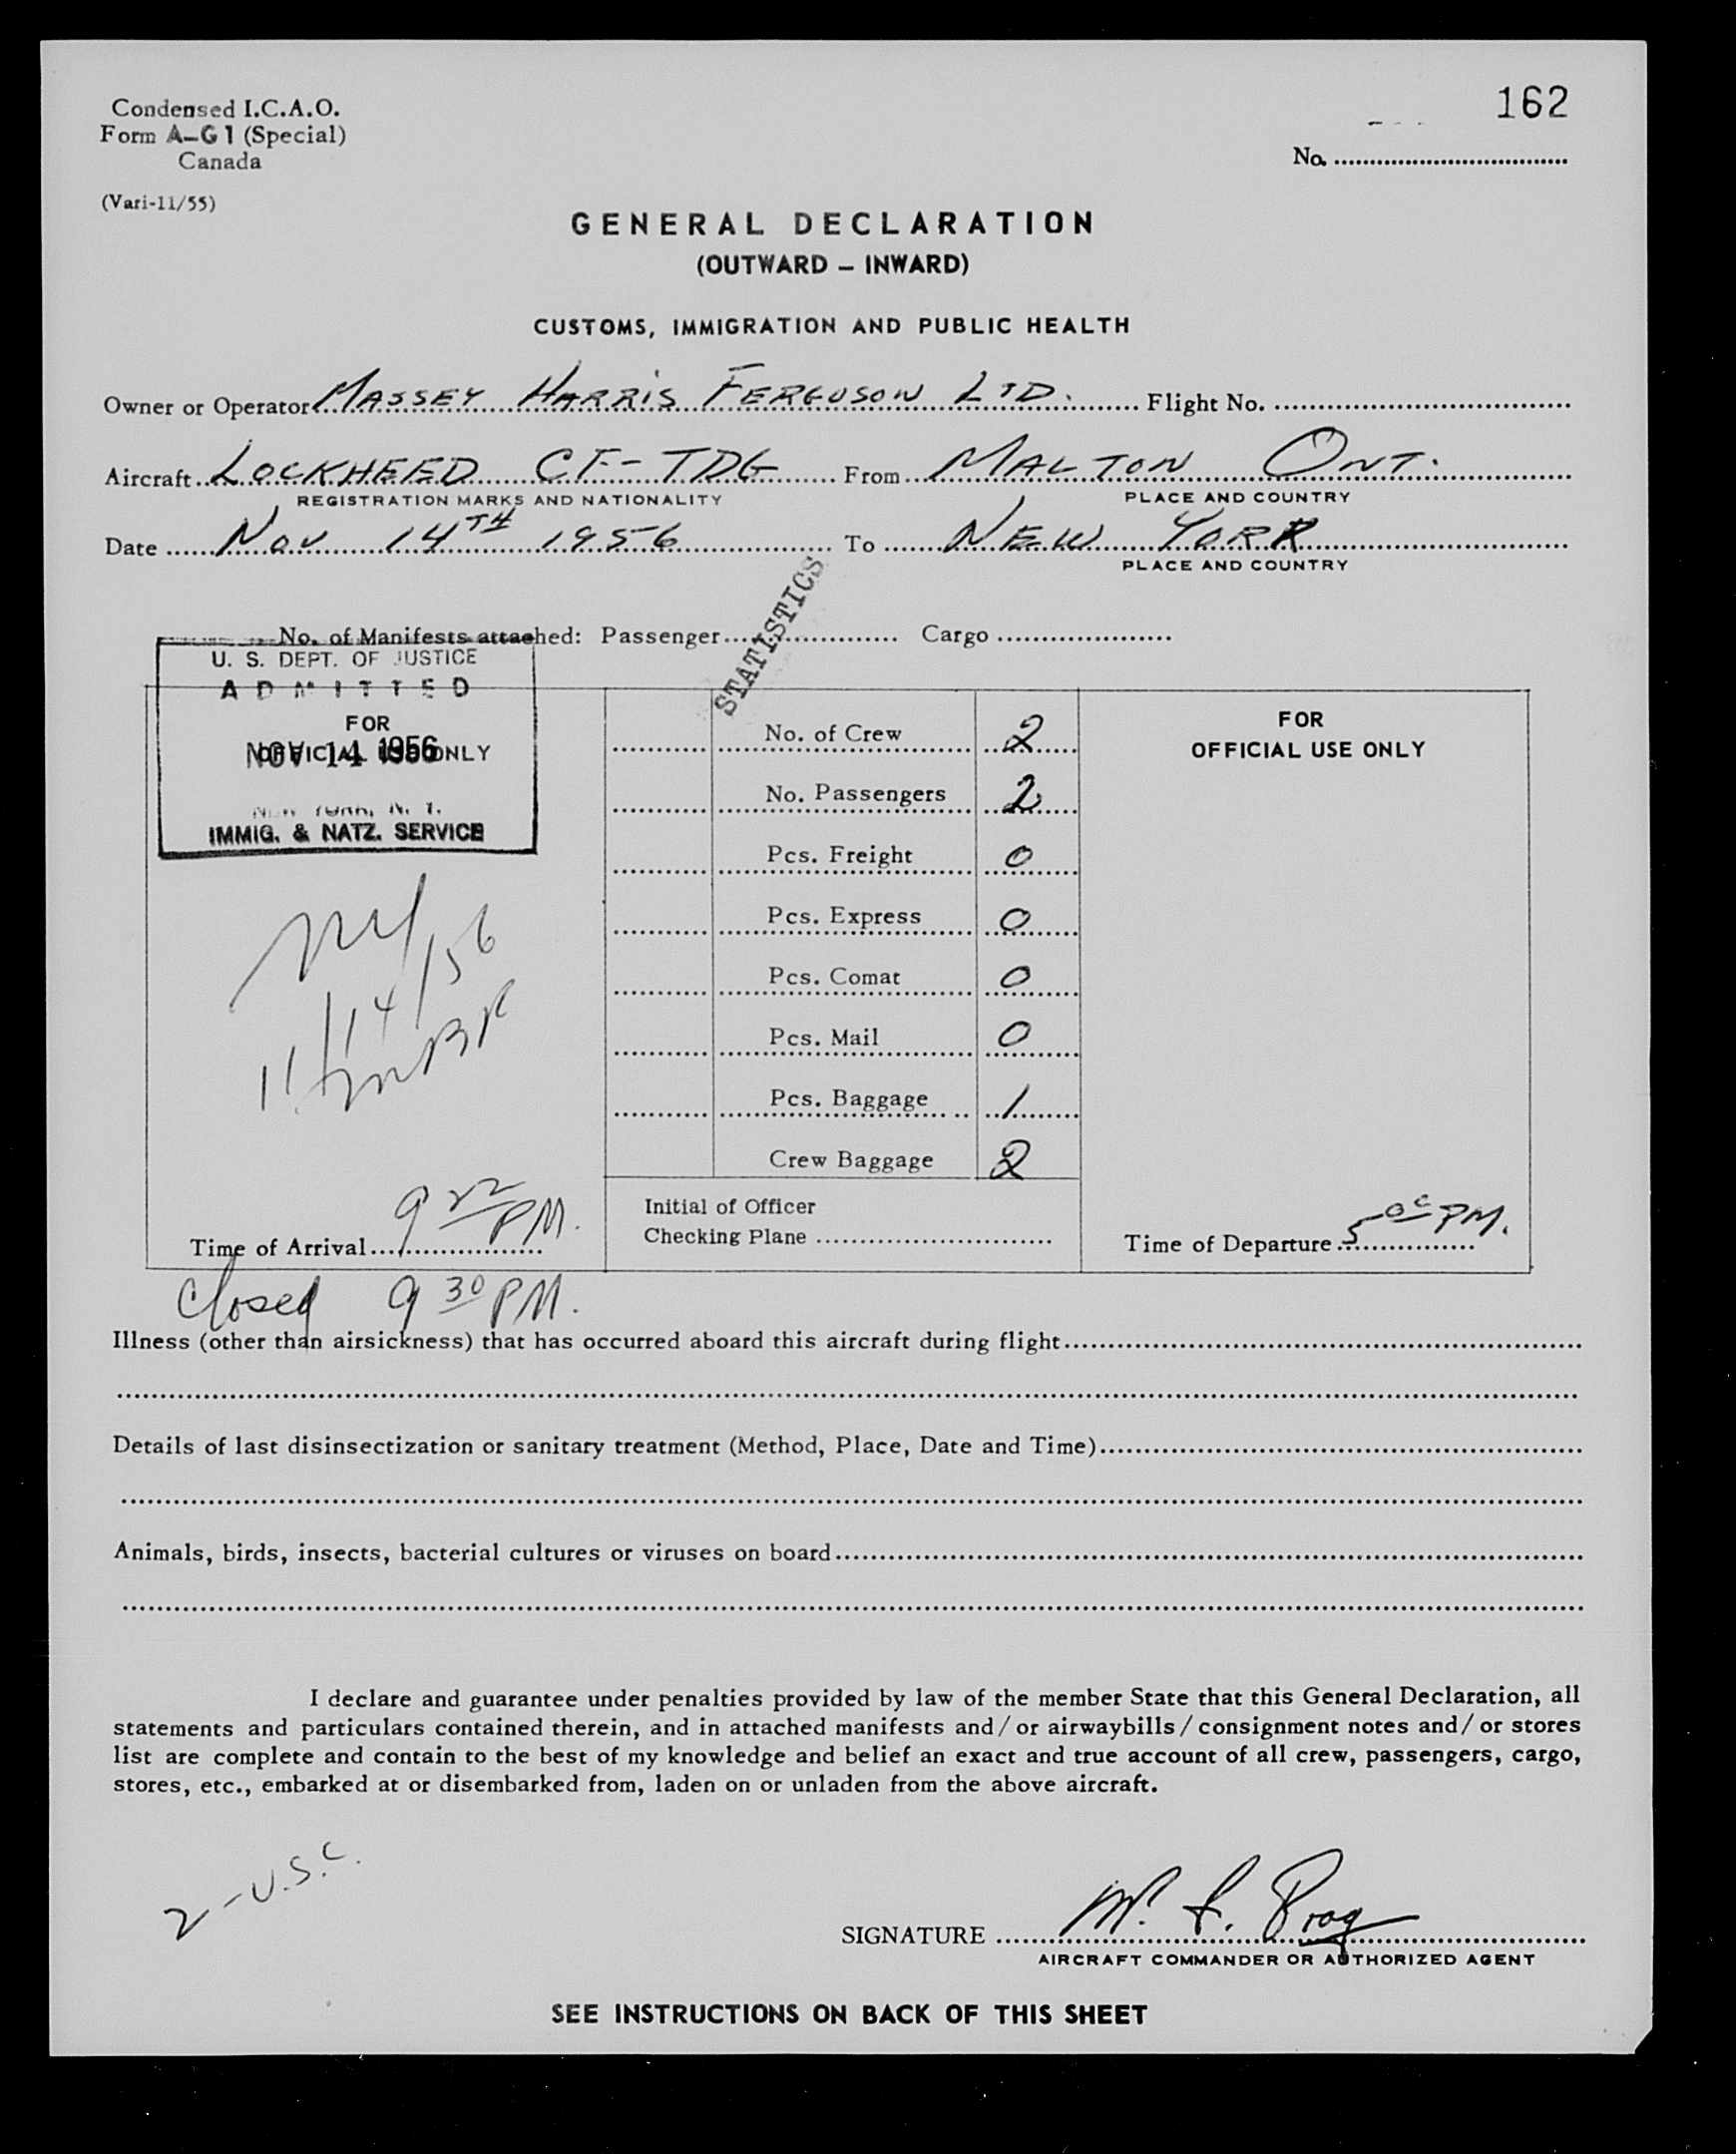 162
Condensed I.C.A.O.
Form A-G1 (Special)
Canada
No.
(Vari-11/55)
GENERAL DECLARATION
(OUTWARD – INWARD)
CUSTOMS, IMMIGRATION AND PUBLIC HEALTH
Owner or Operator MASSEY HARRIS FERGUSON LTD. Flight No.
Aircraft LOCKHEED CF-TDG From MALTON ONT.
REGISTRATION MARKS AND NATIONALITY PLACE AND COUNTRY
Date NOV 14TH 1956 To NEW YORK
PLACE AND COUNTRY
STATISTICS
No. of Manifests attached: Passenger Cargo
U. S. DEPT. OF JUSTICE
ADMITTED
FOR
OFFICIAL USE ONLY
NOV 14 1956
NEW YORK, N. Y.
IMMIG. & NATZ. SERVICE
11/14/56
No. of Crew 2
No. Passengers 2
Pcs. Freight 0
Pcs. Express 0
Pcs. Comat 0
Pcs. Mail 0
Pcs. Baggage 1
Crew Baggage 2
FOR
OFFICIAL USE ONLY
Initial of Officer
Checking Plane
Time of Arrival 9 22 PM.
Time of Departure 5 00 PM.
Closed 9 30 PM.
Illness (other than airsickness) that has occurred aboard this aircraft during flight
Details of last disinsectization or sanitary treatment (Method, Place, Date and Time)
Animals, birds, insects, bacterial cultures or viruses on board
I declare and guarantee under penalties provided by law of the member State that this General Declaration, all
statements and particulars contained therein, and in attached manifests and/or airwaybills/consignment notes and/or stores
list are complete and contain to the best of my knowledge and belief an exact and true account of all crew, passengers, cargo,
stores, etc., embarked at or disembarked from, laden on or unladen from the above aircraft.
2 - U.S.C.
SIGNATURE
AIRCRAFT COMMANDER OR AUTHORIZED AGENT
SEE INSTRUCTIONS ON BACK OF THIS SHEET